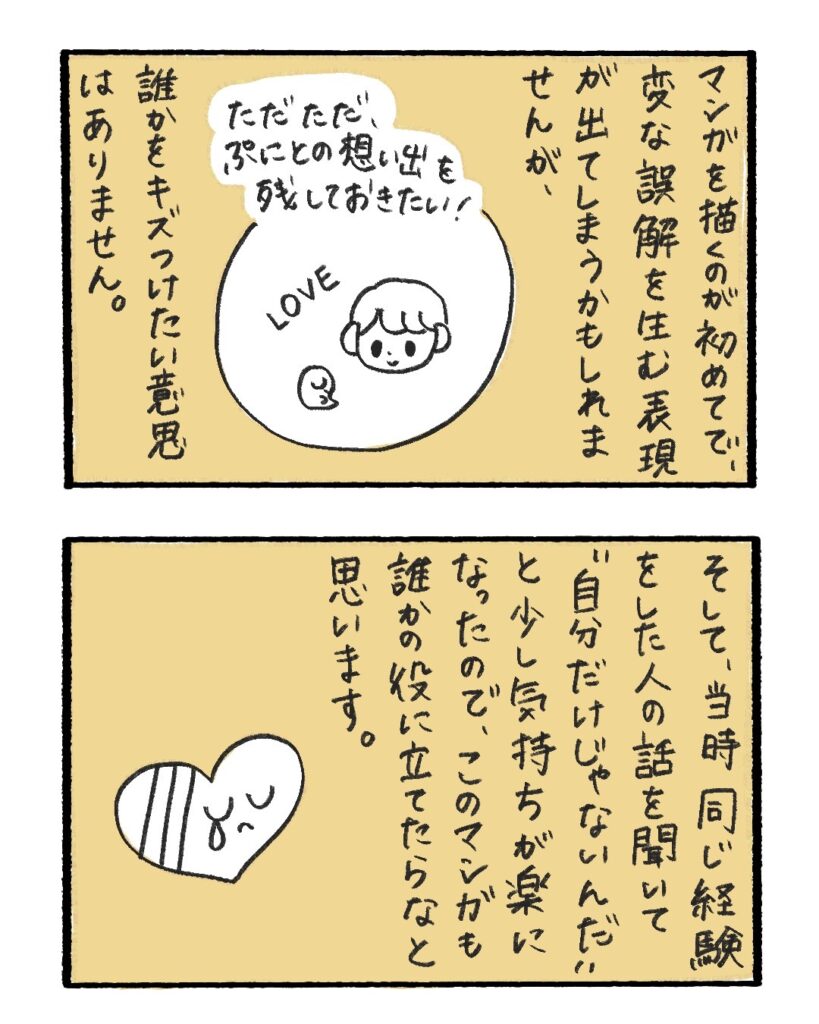 マンガを描くのが初めてで、
変な誤解を生む表現
が出てしまうかもしれま
せんが、
ただただ、
ぷにとの想い出を
残しておきたい!
LOVE
誰かをキズつけたい意思
はありません。
そして、当時同じ経験
をした人の話を聞いて
"自分だけじゃないんだ"
と少し気持ちが楽に
なったので、このマンガも
誰かの役に立てたらなと
思います。